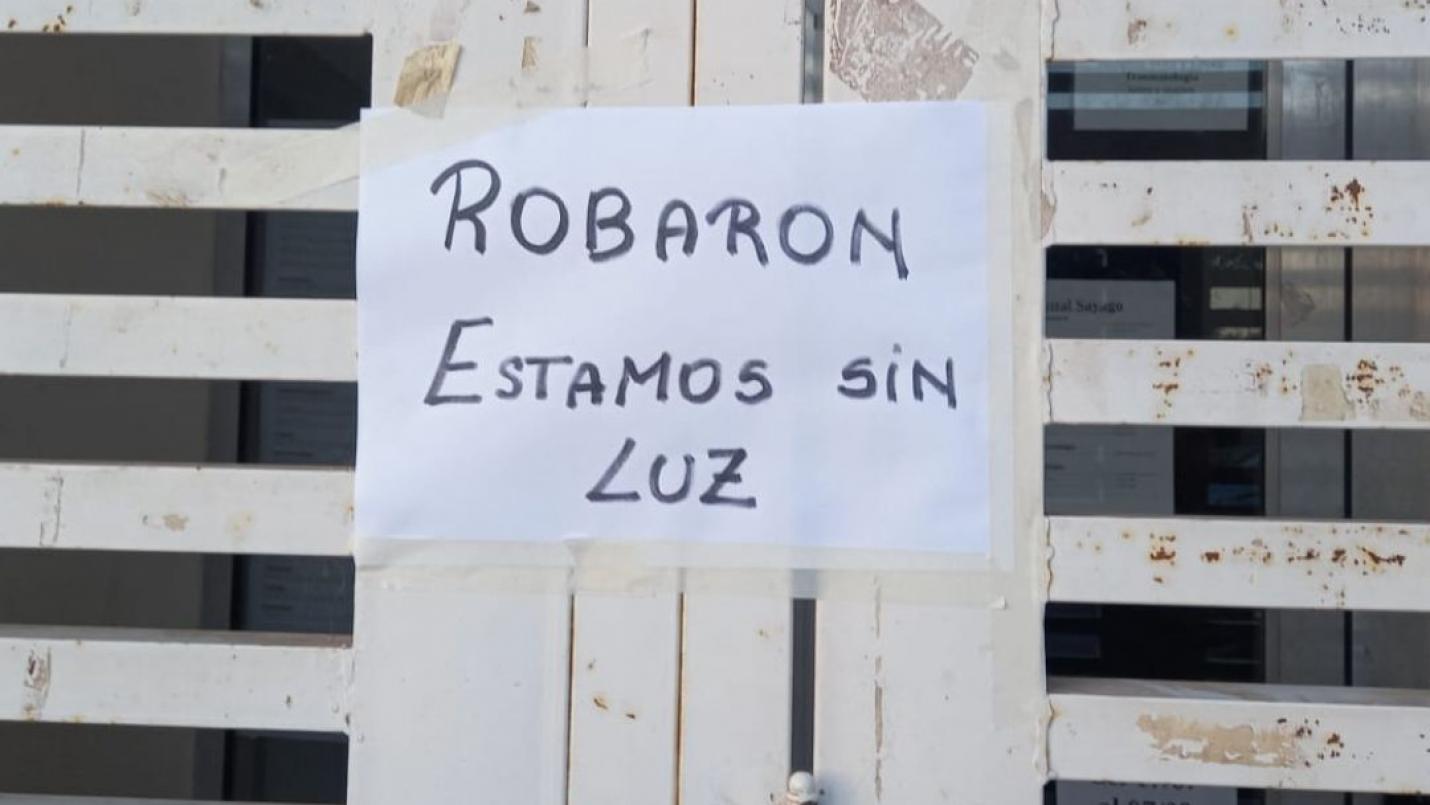 ROBARON
ESTAMOS SIN
LUZ
Traumatología
Sayago